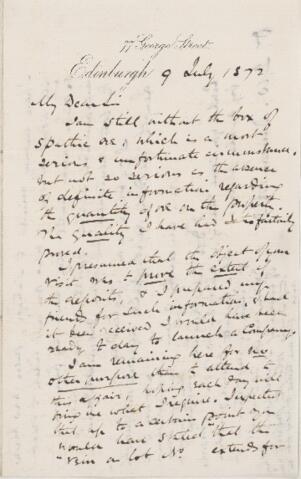 77 George Street.
Edinburgh 9 July 1872
My Dear Sir
I am still without the box of
spathic ore, which is a most
serious & unfortunate circumstance,
but not so serious as the absence
of definite information regarding
the quantity of ore on the property.
The quality I have had satisfactorily
proved.
I presumed that the object of your
visit was to prove the extent of
the deposits, & I prepared my
friends for such information, & had
it been received I would have been
ready to day to launch a Company.
I am remaining here for no
other purpose than to attend to
this affair, hoping each day will
bring me what I require. I expected
that up to a certain point you
would have stated that the
vein on lot No extends for